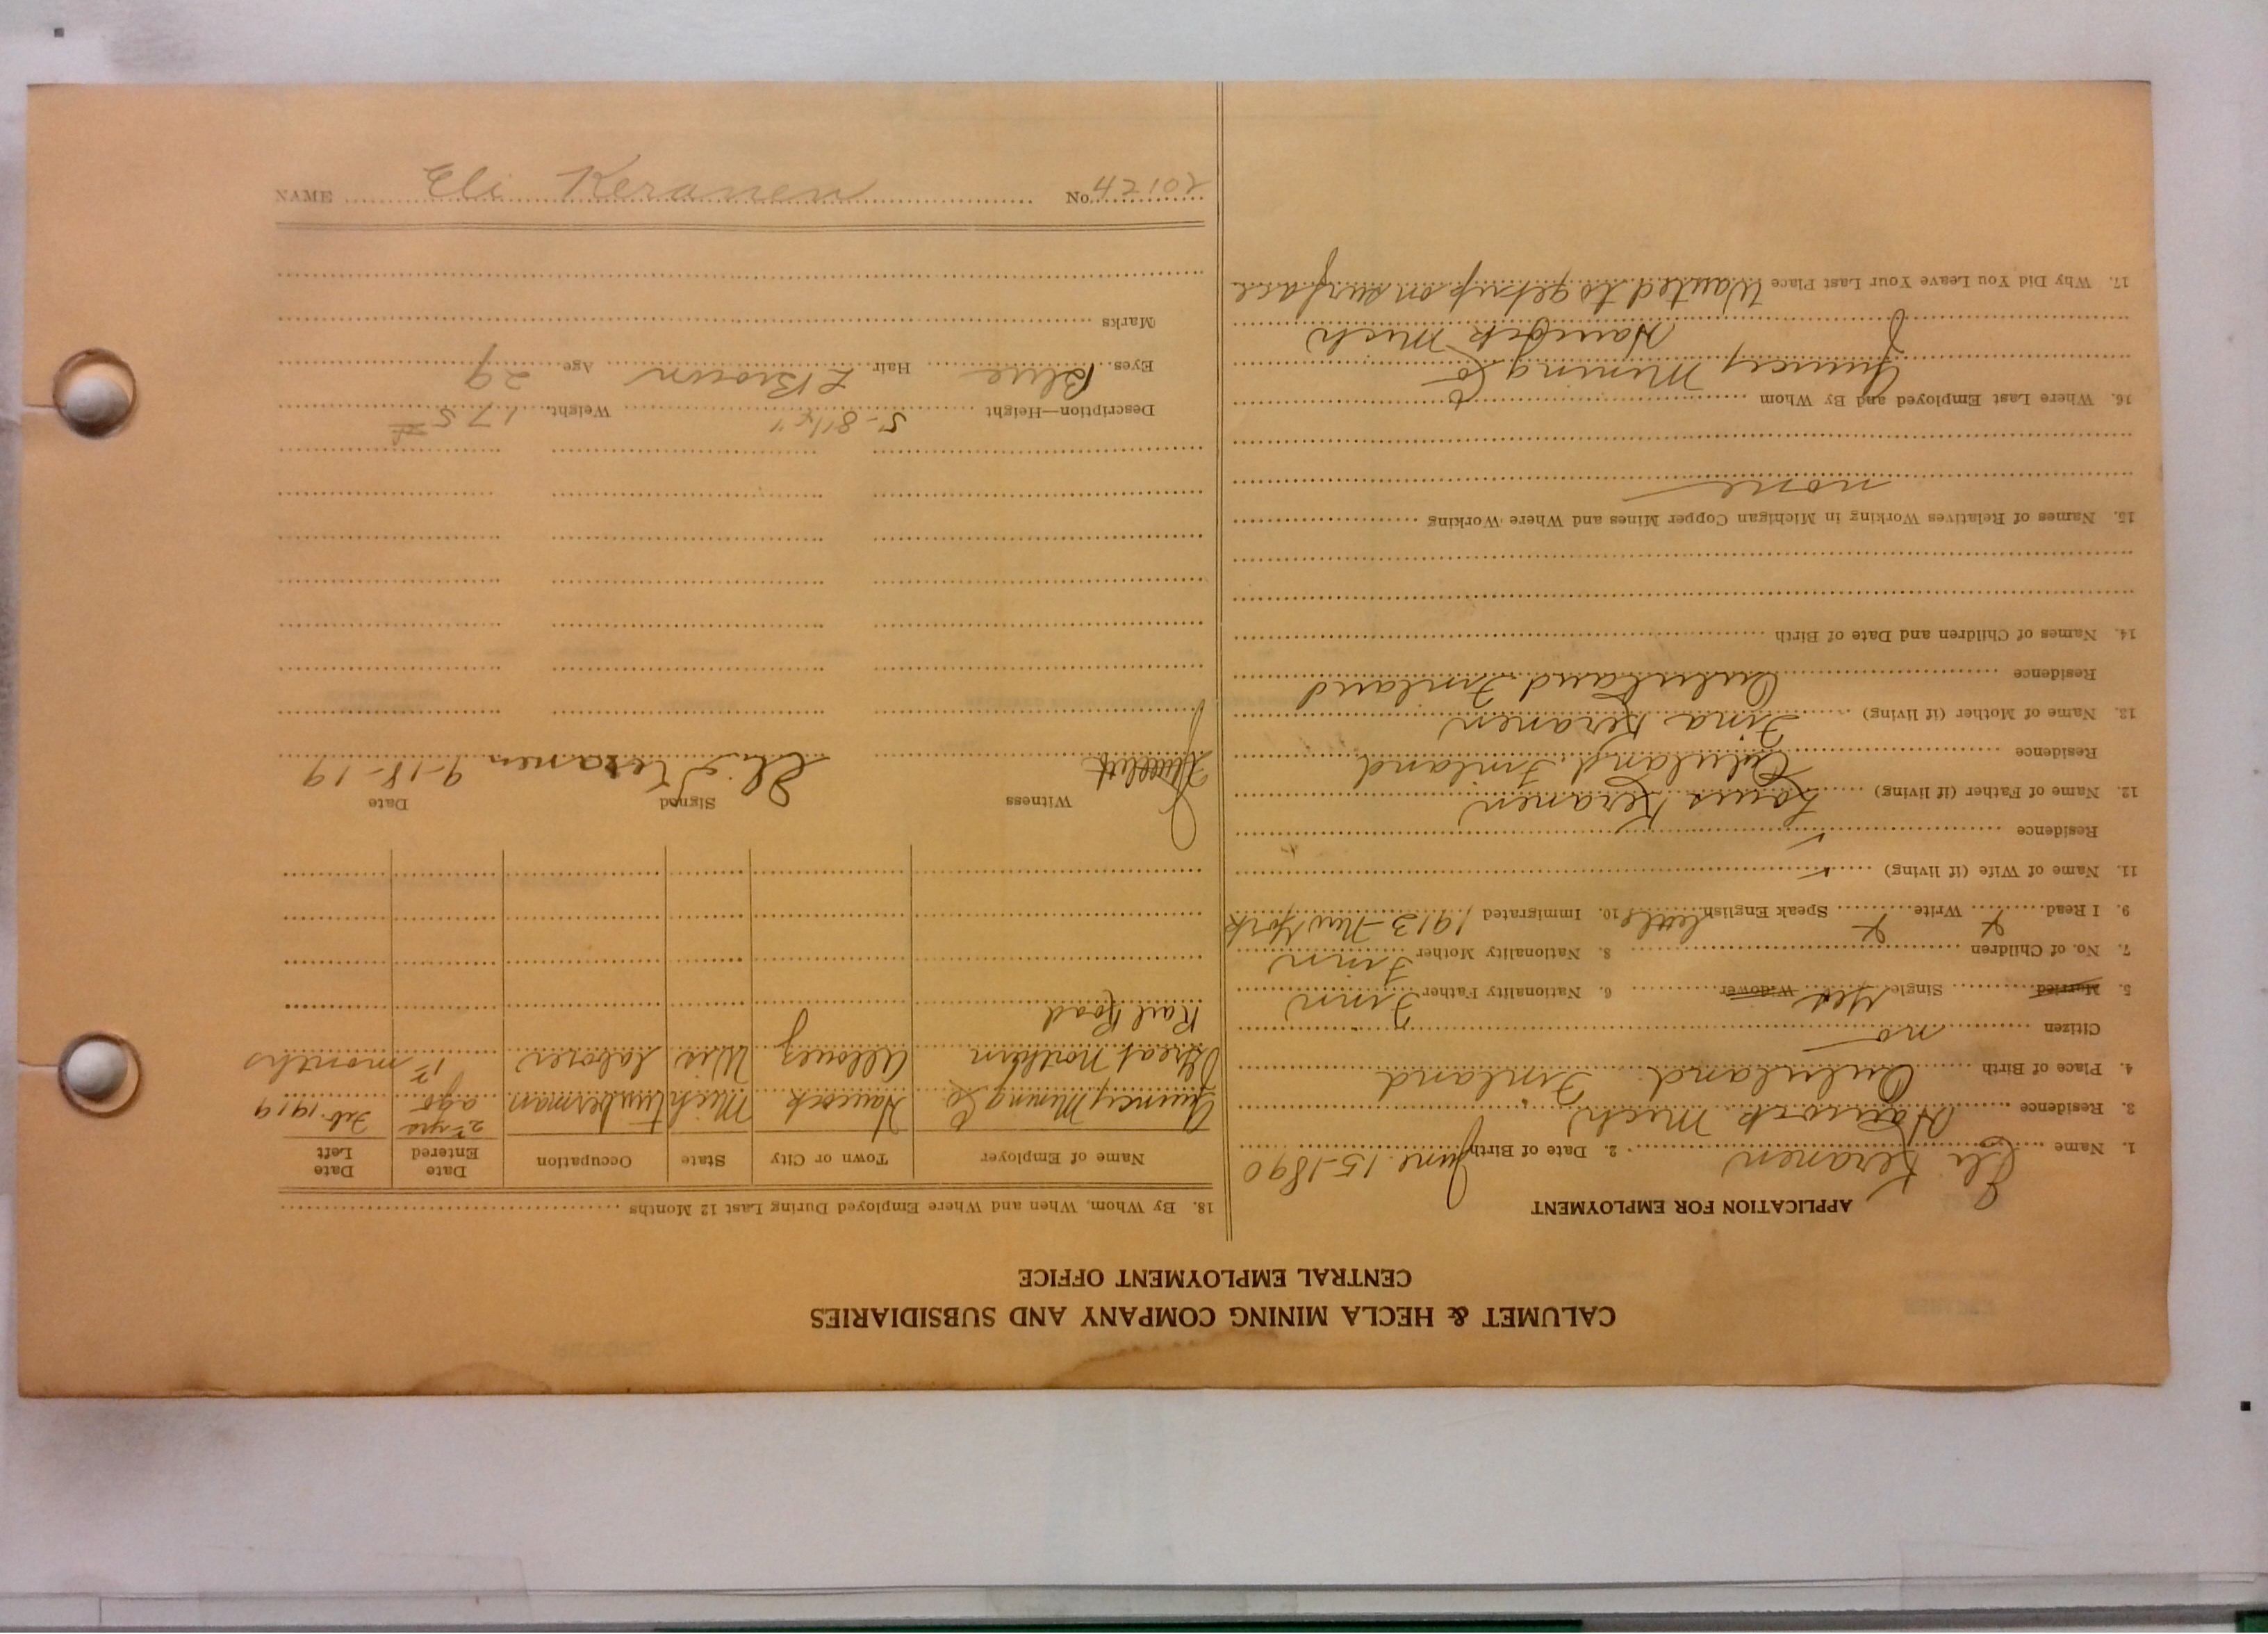 CALUMET & HECLA MINING COMPANY AND SUBSIDIARIES
CENTRAL EMPLOYMENT OFFICE
APPLICATION FOR EMPLOYMENT
1. Name Eli Keranen 2. Date of Birth June 15-1890
3. Residence Hancock Mich
4. Place of Birth Oululand Finland
Citizen no
5. Married Single yes Widower 6. Nationality Father Finn
7. No. of Children 8. Nationality Mother Finn
9. I Read X Write X Speak English little 10. Immigrated 1913-New York
11. Name of Wife (if living) ✓
Residence ✓
12. Name of Father (if living) Louis Keranen
Residence Oululand, Finland
13. Name of Mother (if living) Fina Keranen
Residence Oululand Finland
14. Names of Children and Date of Birth
15. Names of Relatives Working in Michigan Copper Mines and Where Working
none
16. Where Last Employed and By Whom
Quincy Mining Co
Hancock Mich
17. Why Did You Leave Your Last Place Wanted to get up on surface
18. By Whom, When and Where Employed During Last 12 Months
Name of Employer Town or City State Occupation Date Entered Date Left
Quincy Mining Co Hancock Mich timberman 2 yrs ago Feb. 1919
Great Northern Allouez Wis laborer months
Rail Road
Witness Signed Date
Eli Keranen 9-18-19
Description—Height 5-8 1/2" Weight 175
Eyes Blue Hair L Brown Age 29
Marks
NAME Eli Keranen No. 42102